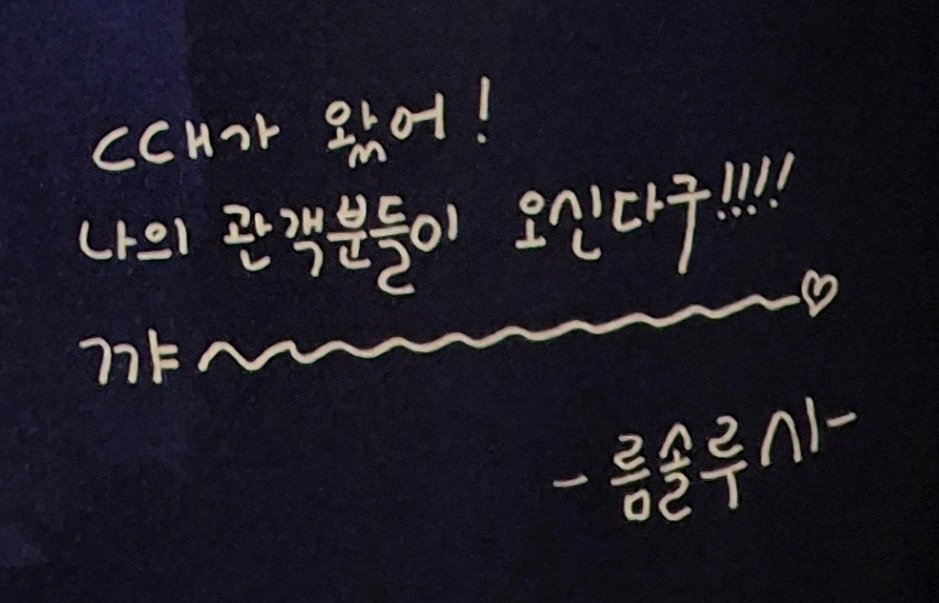 때가 왔어!
나의 관객분들이 오신다구!!!!
꺄~♡
-름솔루시-